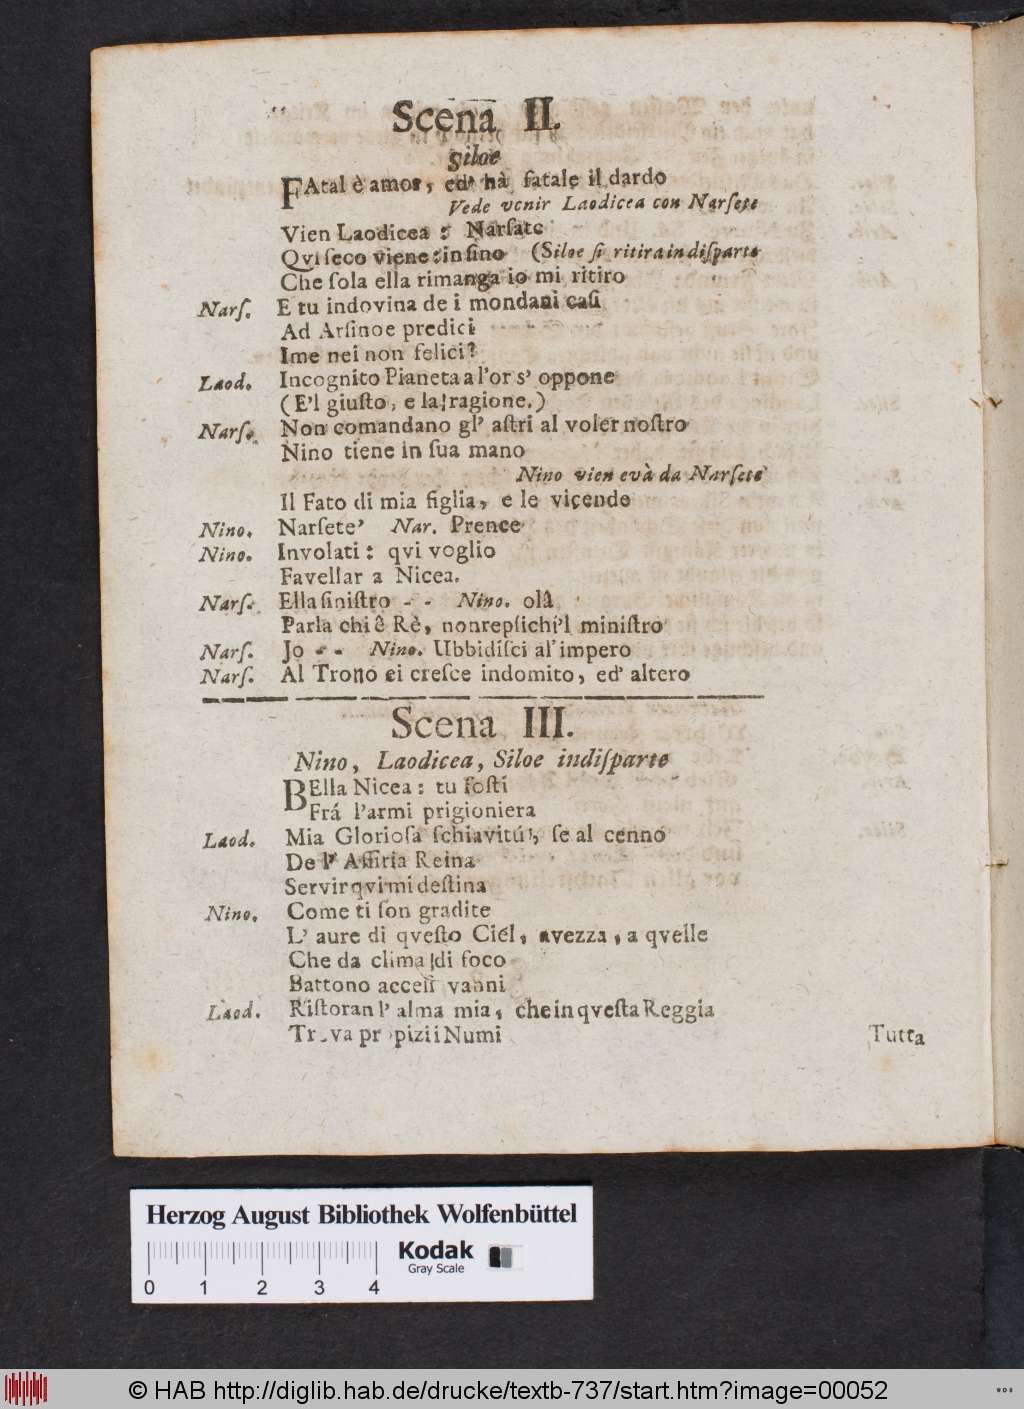 Scena II.
Siloe
FAtal è amor, ed' hà fatale il dardo
Vede venir Laodicea con Narſete
Vien Laodicea : Narſate
Qvi ſeco viene: in ſino (Siloe ſi ritira in diſparte
Che ſola ella rimanga io mi ritiro
Narſ. E tu indovina de i mondani caſi
Ad Arſinoe predici
Ime nei non felici?
Laod. Incognito Pianeta a l'or s' oppone
(E'l giuſto, e la ragione.)
Narſe Non comandano gl' aſtri al voler noſtro
Nino tiene in ſua mano
Nino vien e và da Narſete
Il Fato di mia figlia, e le vicende
Nino. Narſete' Nar. Prence
Nino. Involati : qvi voglio
Favellar a Nicea.
Narſe Ella ſiniſtro - - Nino. olâ
Parla chi ê Rè, non repſichi'l miniſtro
Narſ. Jo - - Nino. Ubbidiſci al' impero
Narſ. Al Trono ei creſce indomito, ed' altero
Scena III.
Nino, Laodicea, Siloe indiſparte
BElla Nicea : tu foſti
Frá l'armi prigioniera
Laod. Mia Glorioſa ſchiavitú, ſe al cenno
De l' Aſſiria Reina
Servir qvi mi deſtina
Nino. Come ti ſon gradite
L' aure di qveſto Ciél, avezza, a qvelle
Che da clima di foco
Battono acceſi vanni
Laod. Riſtoran l' alma mia, che in qveſta Reggia
Trova propizii Numi
Tutta
Herzog August Bibliothek Wolfenbüttel
Kodak
Gray Scale
0 1 2 3 4
© HAB http://diglib.hab.de/drucke/textb-737/start.htm?image=00052